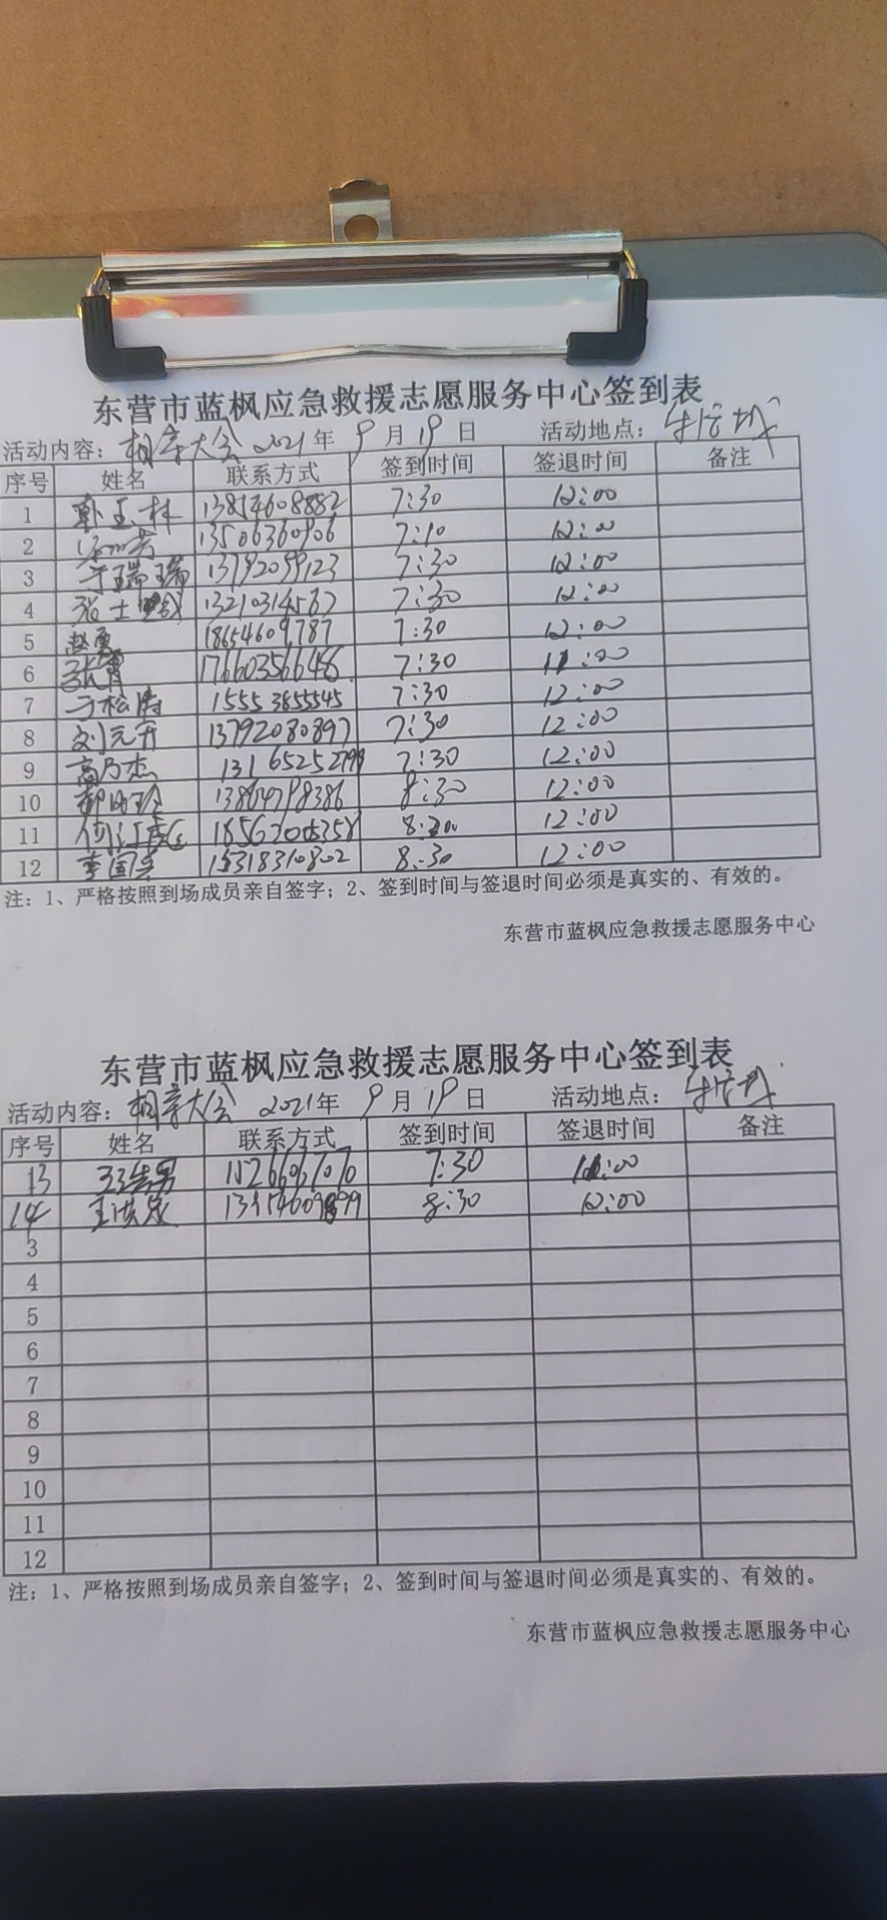 东营市蓝枫应急救援志愿服务中心签到表
活动内容：相亲大会 2021年 9月19日 活动地点：
序号 姓名 联系方式 签到时间 签退时间 备注
1 韩玉林 13854608882 7:30 12:00
2 13506360906 7:10 12:00
3 于瑞瑞 13792099123 7:30 12:00
4 张士 13210314567 7:30 12:00
5 赵勇 18654609787 7:30 12:00
6 张霄 17660356648 7:30 :00
7 于松涛 15553855545 7:30 12:00
8 刘元开 13792080897 7:30 12:00
9 高乃杰 7:30 12:00
10 8:30 12:00
11 8:30 12:00
12 李国 15318310802 8:30 12:00
注：1、严格按照到场成员亲自签字；2、签到时间与签退时间必须是真实的、有效的。
东营市蓝枫应急救援志愿服务中心
东营市蓝枫应急救援志愿服务中心签到表
活动内容：相亲大会 2021年 9月19日 活动地点：
序号 姓名 联系方式 签到时间 签退时间 备注
13 7:30 :00
14 王洪泉 8:30 12:00
3
4
5
6
7
8
9
10
11
12
注：1、严格按照到场成员亲自签字；2、签到时间与签退时间必须是真实的、有效的。
东营市蓝枫应急救援志愿服务中心